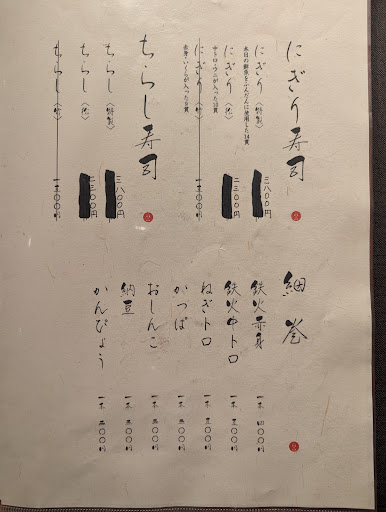 にぎり寿司
にぎり〈特製〉 三八〇〇円
本日の鮮魚をふんだんに使用した14貫
にぎり〈花〉 二三〇〇円
中トロ・ウニが入った10貫
にぎり〈竹〉 一五〇〇円
赤身・いくらが入った8貫
ちらし寿司
ちらし〈特製〉 三八〇〇円
ちらし〈花〉 二三〇〇円
ちらし〈竹〉 一五〇〇円
細巻
鉄火赤身 一本 四〇〇円
鉄火中トロ 一本 五〇〇円
ねぎトロ 一本 五〇〇円
かっぱ 一本 三〇〇円
おしんこ 一本 三〇〇円
納豆 一本 三〇〇円
かんぴょう 一本 三〇〇円